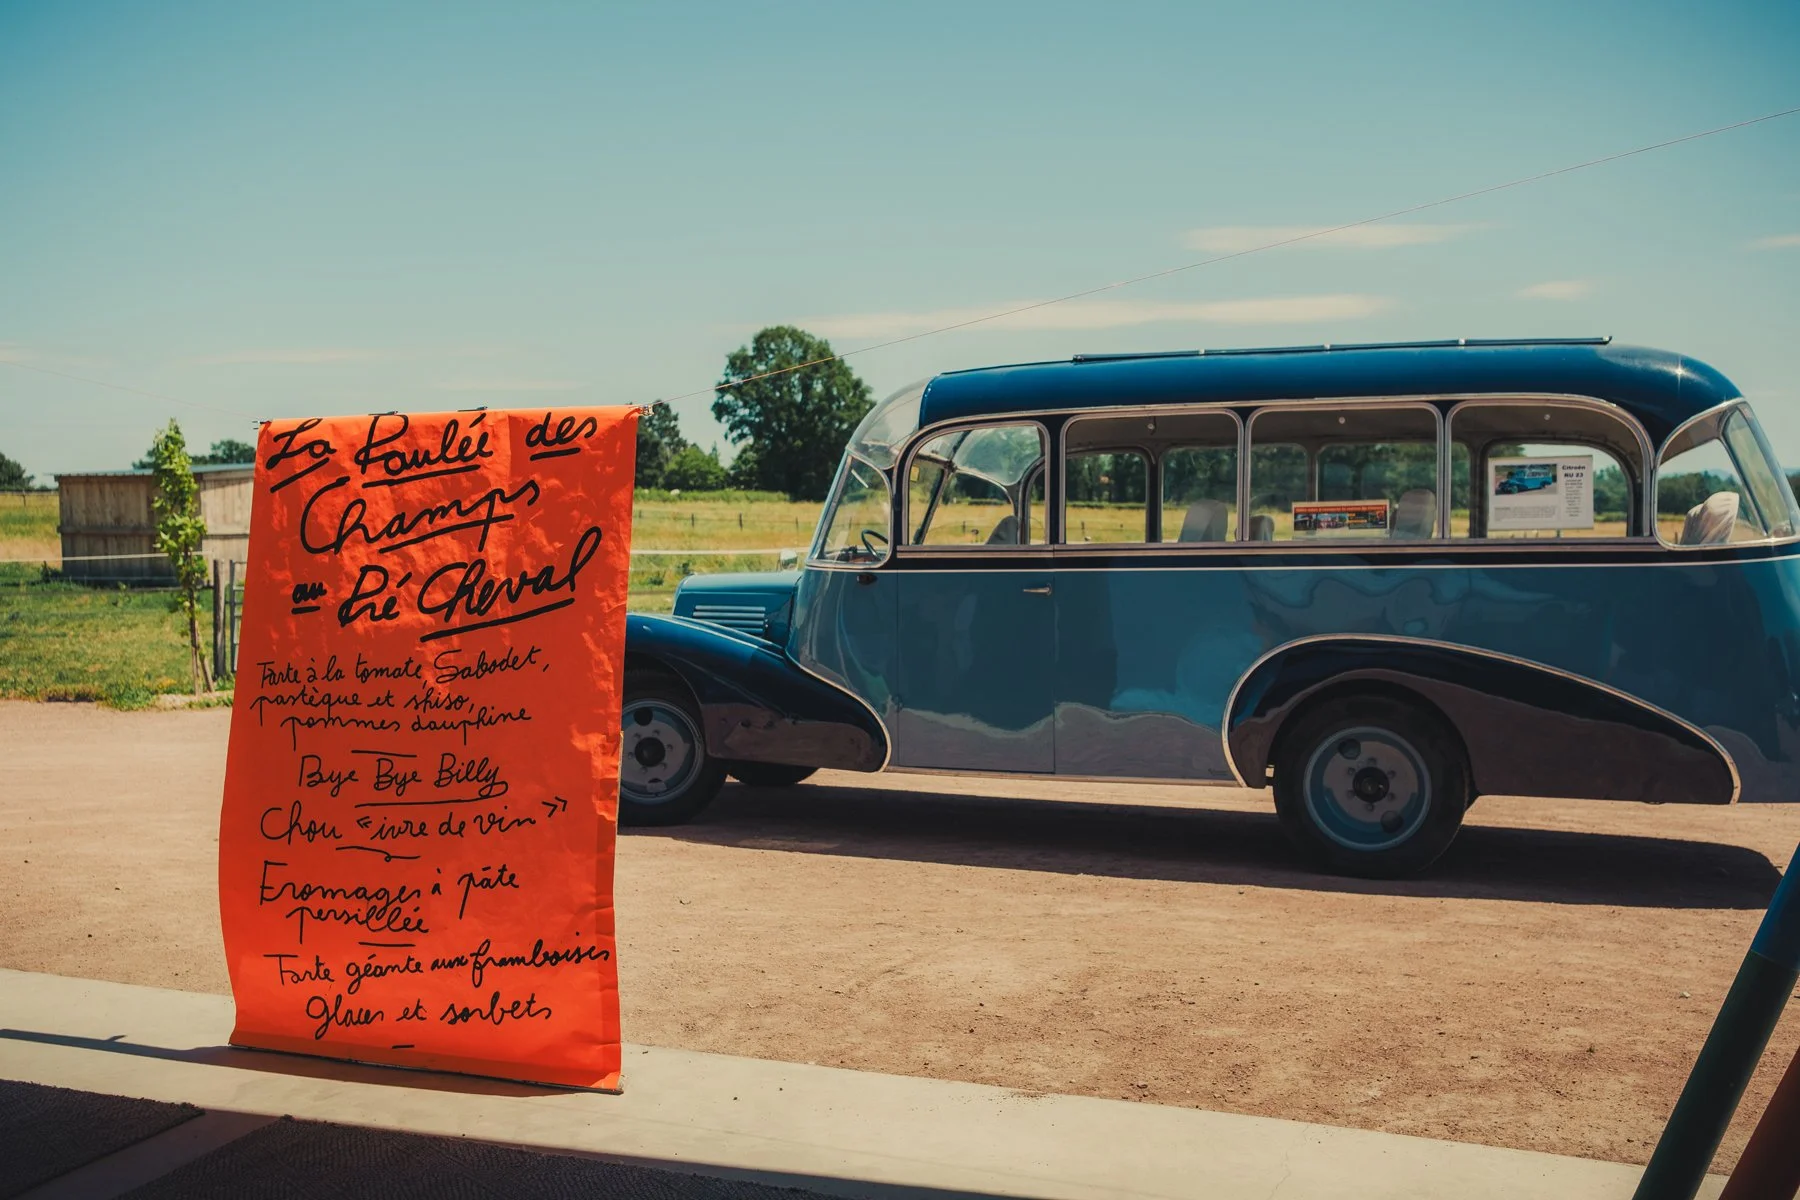 La Paulée des
Champs
au Pré Cheval
Tarte à la tomate, Sabodet,
pastèque et shiso,
pommes dauphine
Bye Bye Billy
Chou "ivre de vin"
Fromages à pâte
persillée
Tarte géante aux framboises
Glaces et sorbets
Citroën
RU 23